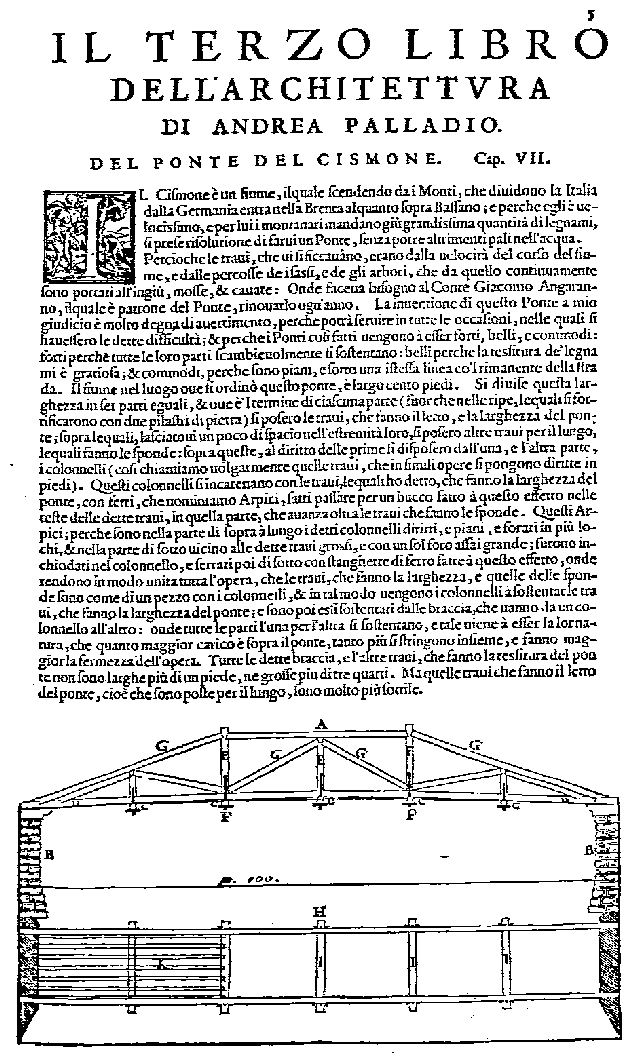 5
IL TERZO LIBRO
DELL'ARCHITETTVRA
DI ANDREA PALLADIO.
DEL PONTE DEL CISMONE. Cap. VII.
IL Cismone è un fiume, ilquale scendendo da i Monti, che diuidono la Italia
dalla Germania entra nella Brenta alquanto sopra Bassano; e perche egli è ue-
locissimo, e per lui i montanari mandano giù grandissima quantità di legnami,
si prese risolutione di farui un Ponte, senza porre altrimenti pali nell'acqua.
Percioche le traui, che ui si ficcauano, erano dalla uelocità del corso del fiu-
me, e dalle percosse de i sassi, e de gli arbori, che da quello continuamente
sono portati all'ingiù, mosse, & cauate: Onde faceua bisogno al Conte Giacomo Angaran-
no, ilquale è patrone del Ponte, rinouarlo ogn'anno. La inuentione di questo Ponte a mio
giudicio è molto degna di auertimento, perche potrà seruire in tutte le occasioni, nelle quali si
hauessero le dette difficultà; & perche i Ponti così fatti uengono à esser forti, belli, e commodi:
forti perche tutte le loro parti scambieuolmente si sostentano: belli perche la tessitura de' legna
mi è gratiosa; & commodi, perche sono piani, e sotto una istessa linea co'l rimanente della stra
da. Il fiume nel luogo oue si ordinò questo ponte, è largo cento piedi. Si diuise questa lar-
ghezza in sei parti eguali, & oue è 'l termine di ciascuna parte (fuor che nelle ripe, lequali si for-
tificarono con due pilastri di pietra) si posero le traui, che fanno il letto, e la larghezza del pon-
te; sopra lequali, lasciatoui un poco di spacio nell'estremità loro, si posero altre traui per il lungo,
lequali fanno le sponde: sopra queste, al diritto delle prime si disposero dall'una, e l'altra parte,
i colonnelli (così chiamiamo uolgarmente quelle traui, che in simili opere si pongono diritte in
piedi). Questi colonnelli si incatenano con le traui, lequali ho detto, che fanno la larghezza del
ponte, con ferri, che nominiamo Arpici, fatti passare per un bucco fatto à questo effetto nelle
teste delle dette traui, in quella parte, che auanza oltra le traui che fanno le sponde. Questi Ar-
pici; perche sono nella parte di sopra à lungo i detti colonnelli diritti, e piani, e forati in più lo-
chi, & nella parte di sotto uicino alle dette traui grossi, e con un sol foro assai grande; furono in-
chiodati nel colonnello, e serrati poi di sotto con stanghette di ferro fatte à questo effetto, onde
rendono in modo unita tutta l'opera, che le traui, che fanno la larghezza, e quelle delle spon-
de sono come di un pezzo con i colonnelli, & in tal modo uengono i colonnelli à sostentar le tra
ui, che fanno la larghezza del ponte; e sono poi essi sostentati dalle braccia, che uanno da un co-
lonnello all'altro: onde tutte le parti l'una per l'altra si sostentano, e tale uiene à esser la lor na-
tura, che quanto maggior carico è sopra il ponte, tanto più si stringono insieme, e fanno mag-
gior la fermezza dell'opera. Tutte le dette braccia, e l'altre traui, che fanno la tessitura del pon
te non sono larghe più di un piede, ne grosse piu di tre quarti. Ma quelle traui che fanno il letto
del ponte, cioè che sono poste per il lungo, sono molto più sottili.
A
G G G G
E E E
F F
B B
p. 100.
H
K I I I